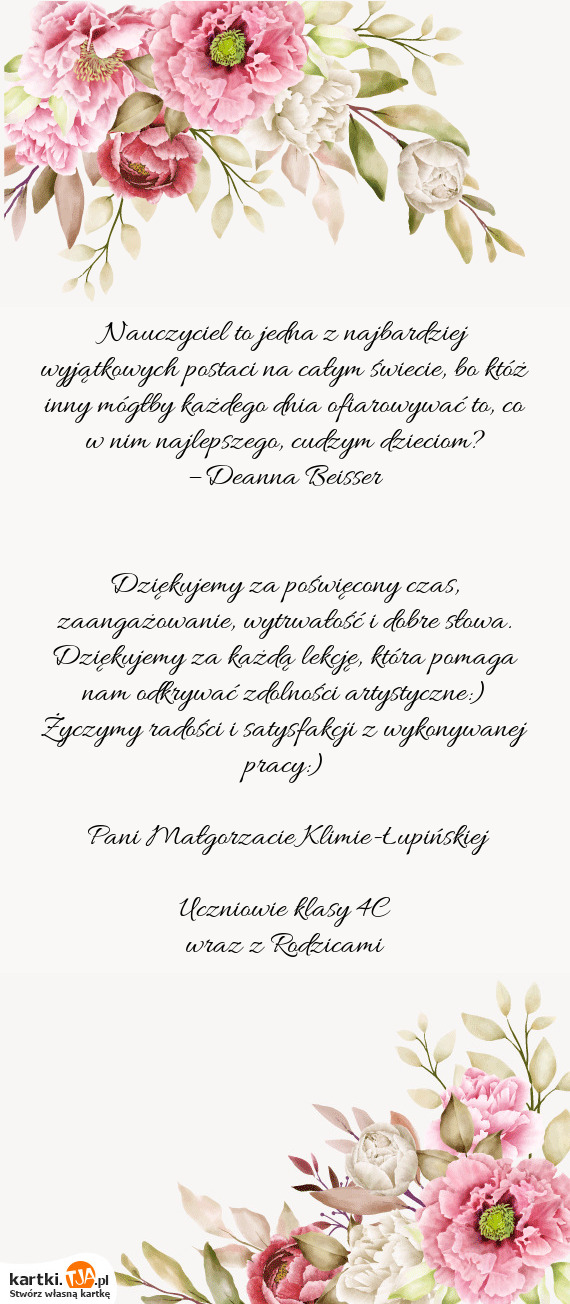 Nauczyciel to jedna z najbardziej
wyjątkowych postaci na całym świecie, bo któż
inny mógłby każdego dnia ofiarowywać to, co
w nim najlepszego, cudzym dzieciom?
– Deanna Beisser
Dziękujemy za poświęcony czas,
zaangażowanie, wytrwałość i dobre słowa.
Dziękujemy za każdą lekcję, która pomaga
nam odkrywać zdolności artystyczne:)
Życzymy radości i satysfakcji z wykonywanej
pracy:)
Pani Małgorzacie Klimie-Łupińskiej
Uczniowie klasy 4C
wraz z Rodzicami
kartki.TJA.pl
Stwórz własną kartkę